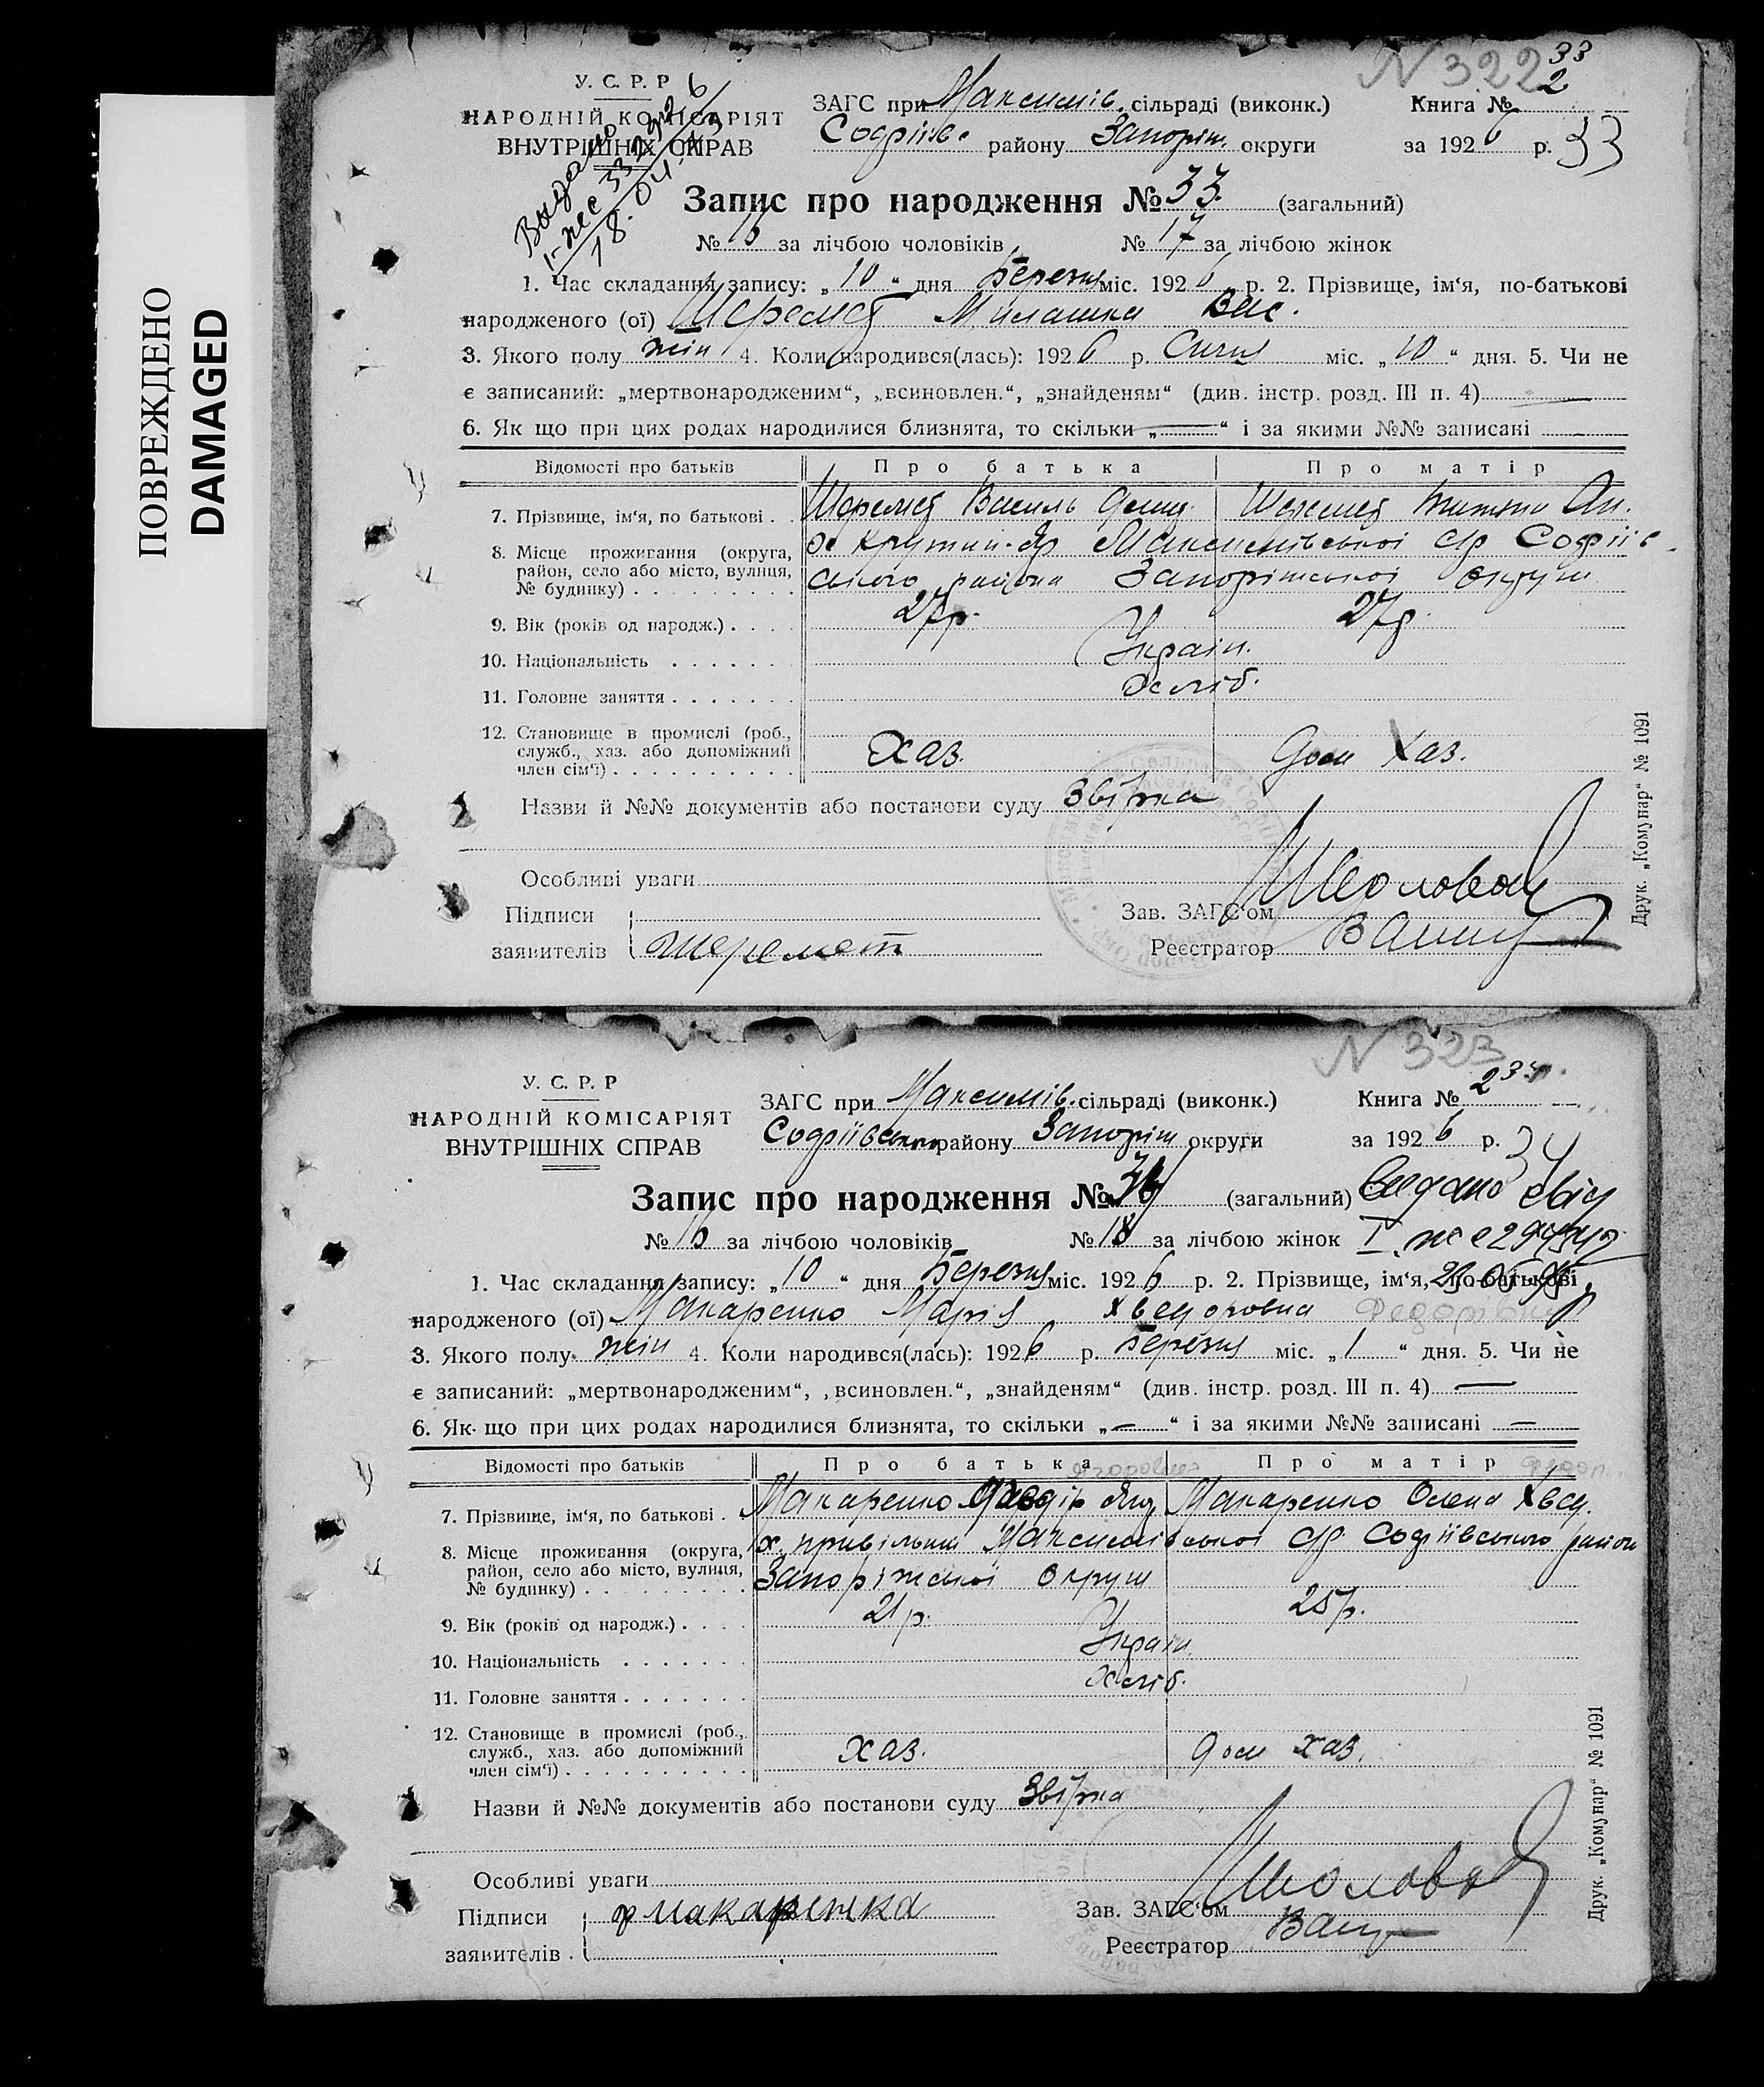 ПОВРЕЖДЕНО
DAMAGED
N 322 33
У. С. Р. Р
НАРОДНІЙ КОМІСАРІЯТ
ВНУТРІШНІХ СПРАВ
Выдано
18.04
ЗАГС при Максимів. сільраді (виконк.) Книга № 2
Софіїв району Запоріж. округи за 1926 р. 33
Запис про народження № 33 (загальний)
№ 16 за лічбою чоловіків № 17 за лічбою жінок
1. Час складання запису: „10“ дня Березня міс. 1926 р. 2. Прізвище, ім‘я, по-батькові
народженого (ої) Шеремет Милашка Вас.
3. Якого полу жін 4. Коли народився(лась): 1926 р. Січня міс. „10“ дня. 5. Чи не
є записаний: „мертвонародженим“, „всиновлен.“, „знайденям“ (див. інстр. розд. III п. 4)
6. Як що при цих родах народилися близнята, то скільки „—“ і за якими №№ записані
Відомості про батьків Про батька Про матір
7. Прізвище, ім‘я, по батькові . . Шеремет Василь Шеремет Ан.
8. Місце проживання (округа, район, село або місто, вулиця, № будинку) х Крутий-Яр Максимівської с/р Софіїв
ського района Запоріжської округи
9. Вік (років од народж.) . . . . 27р. 27р.
10. Національність . . . . . . . Україн.
11. Головне заняття . . . . . . . Хліб.
12. Становище в промислі (роб., служб., хаз. або допоміжний член сім‘ї) . . . . . . . . . . Хаз. Дом Хаз.
Назви й №№ документів або постанови суду Звірка
Особливі уваги
Підписи
заявителів Шеремет
Зав. ЗАГС‘ом
Реєстратор
Друк. „Комунар“ № 1091
N 323
У. С. Р. Р
НАРОДНІЙ КОМІСАРІЯТ
ВНУТРІШНІХ СПРАВ
ЗАГС при Максимів. сільраді (виконк.) Книга № 2 34
Софіївського району Запоріж округи за 1926 р. 34
Запис про народження № 34 (загальний)
№ 16 за лічбою чоловіків № 18 за лічбою жінок
1. Час складання запису: „10“ дня Березня міс. 1926 р. 2. Прізвище, ім‘я, по-батькові
народженого (ої) Макаренко Марія Хведоровна Федорівна
3. Якого полу жін 4. Коли народився(лась): 1926 р. Березня міс. „1“ дня. 5. Чи не
є записаний: „мертвонародженим“, „всиновлен.“, „знайденям“ (див. інстр. розд. III п. 4) —
6. Як що при цих родах народилися близнята, то скільки „—“ і за якими №№ записані —
Відомості про батьків Про батька Про матір
7. Прізвище, ім‘я, по батькові . . Макаренко Макаренко Олена Хвед.
8. Місце проживання (округа, район, село або місто, вулиця, № будинку) х. Привільний Максимівської с/р Софіївського район
Запоріжської округи
9. Вік (років од народж.) . . . . 21р. 25р.
10. Національність . . . . . . . Україн.
11. Головне заняття . . . . . . . Хліб.
12. Становище в промислі (роб., служб., хаз. або допоміжний член сім‘ї) . . . . . . . . . . Хаз. Дом хаз.
Назви й №№ документів або постанови суду Звірка
Особливі уваги
Підписи
заявителів
Зав. ЗАГС‘ом
Реєстратор
Друк. „Комунар“ № 1091